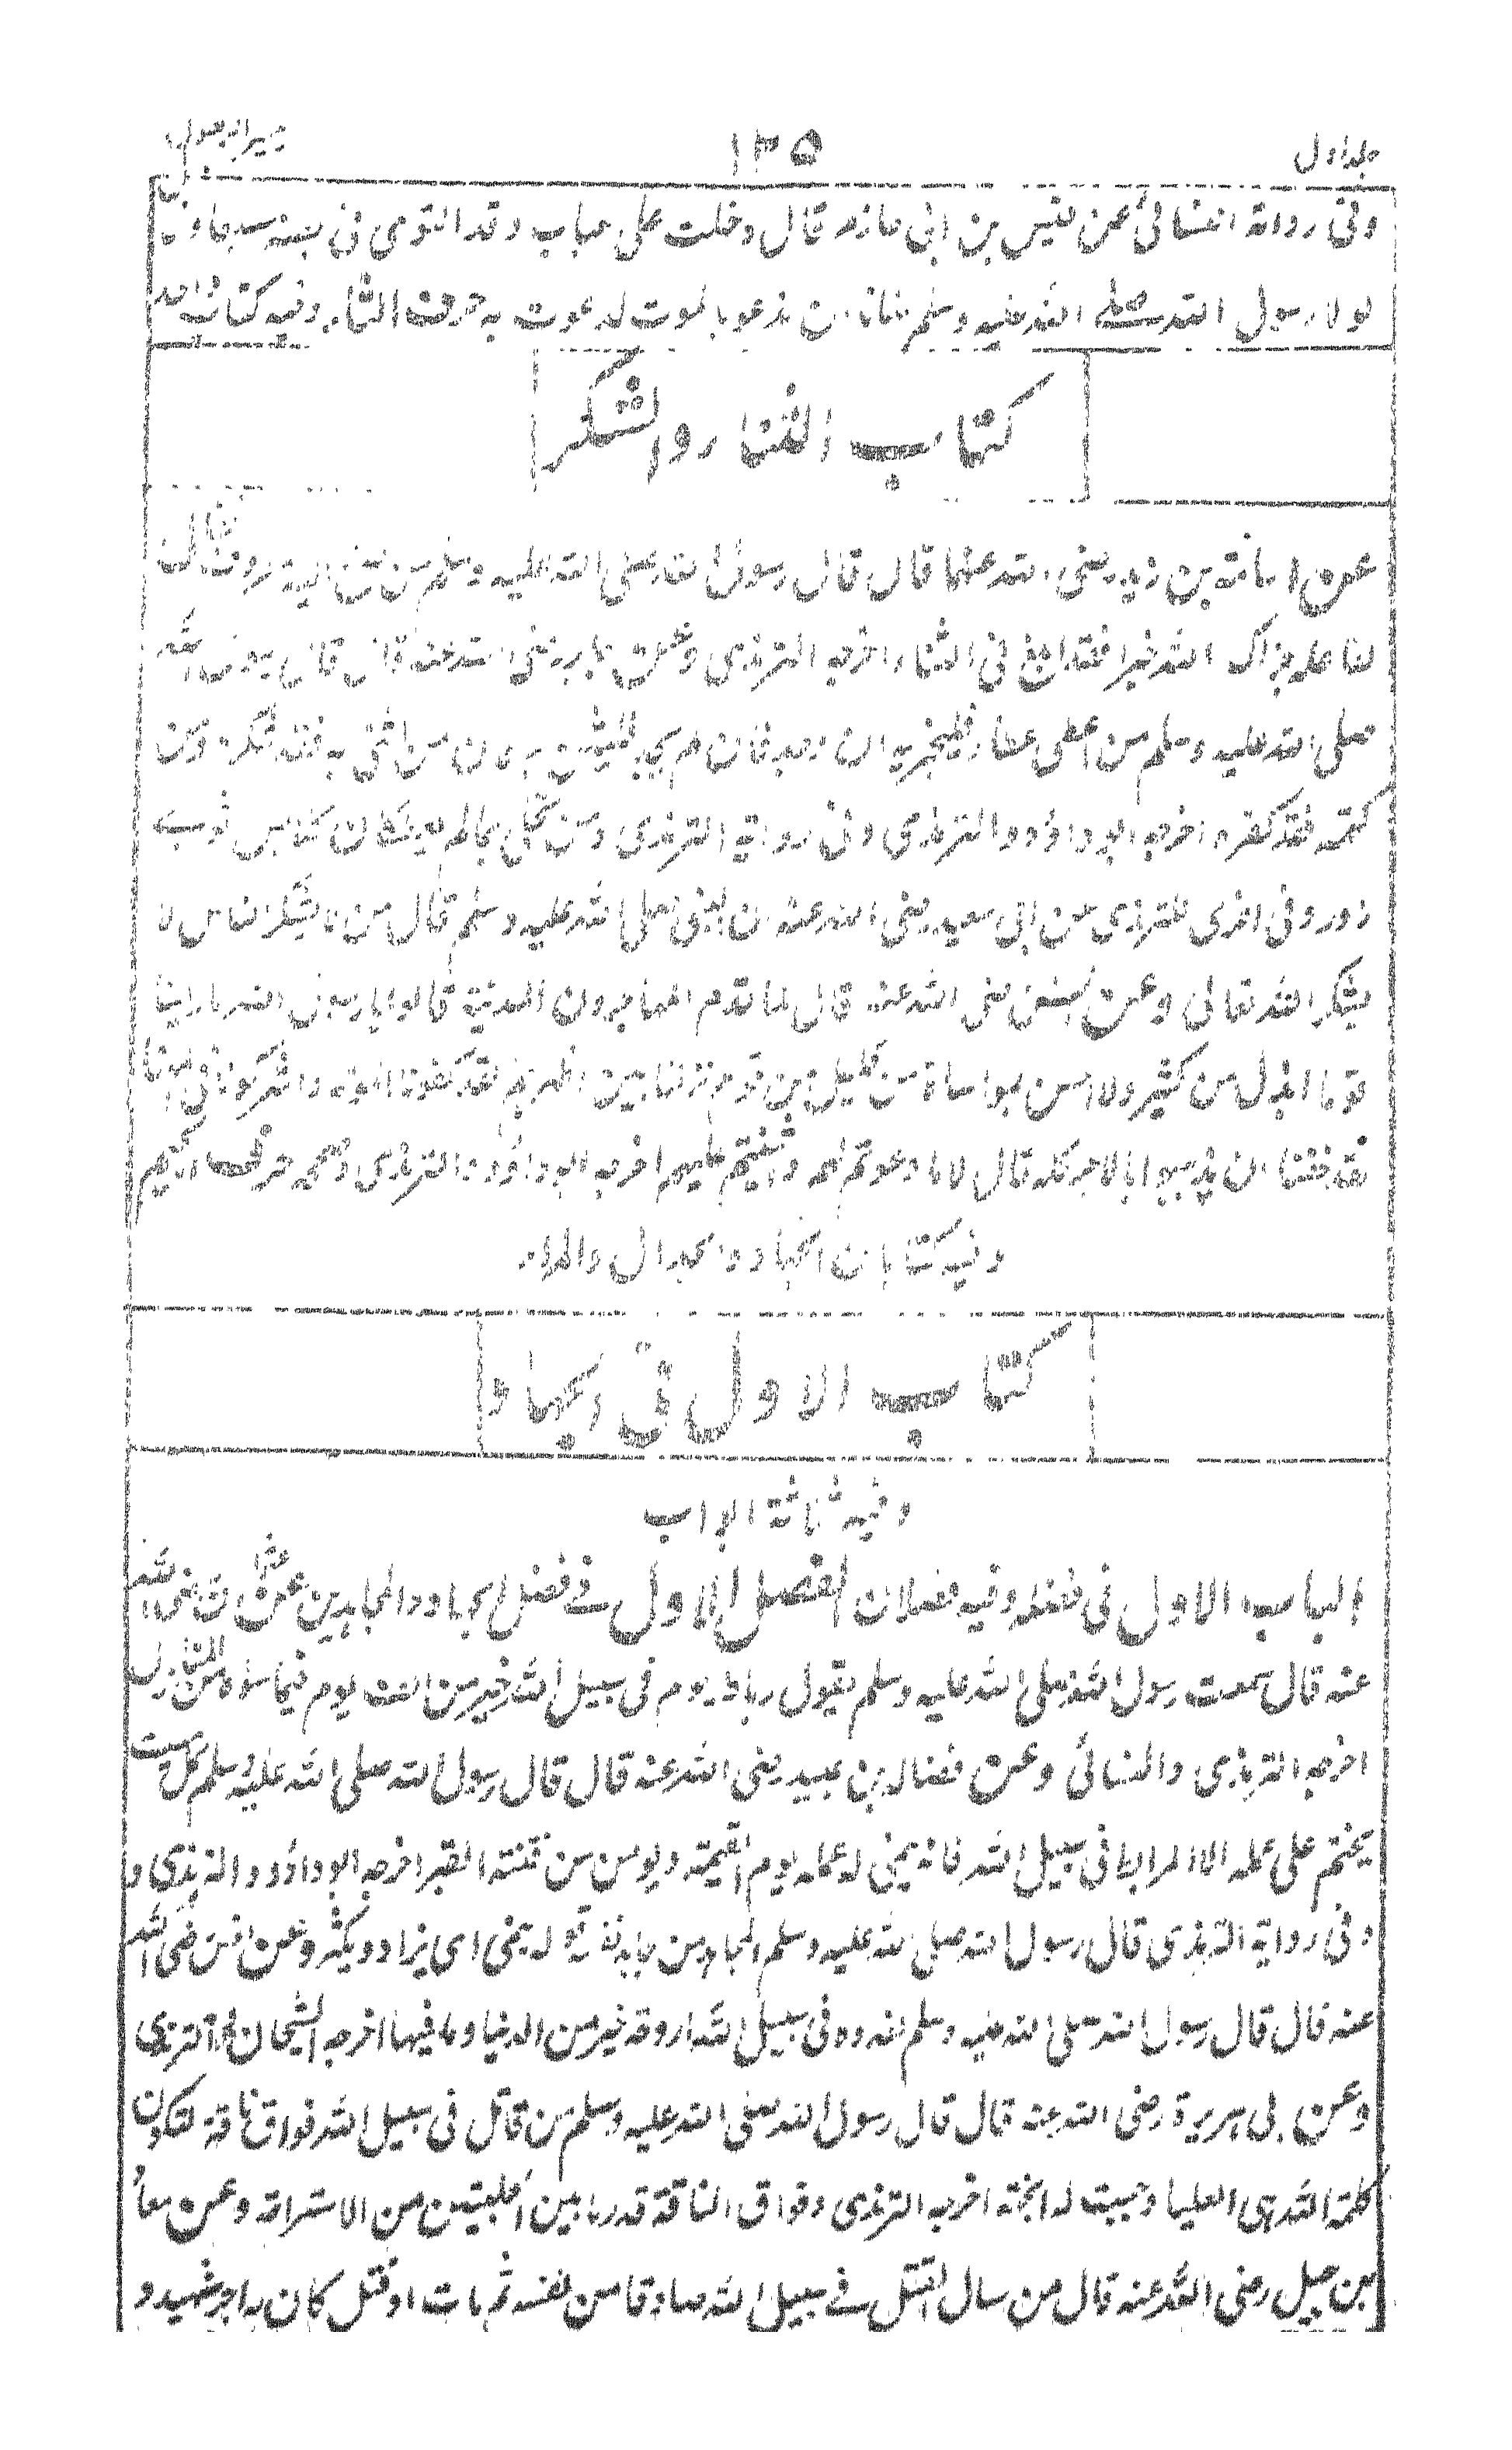 جلد اول
١٣٥
وفی روایة النسائی عن قیس بن ابی حازم قال دخلت علی خباب وقد اکتوی فی بطنه سبعا وقال
لولا رسول الله صلی الله علیه وسلم نهانا ان ندعو بالموت لدعوت به حرف الثاء وفیه کتاب واحد
کتاب الثناء والشکر
عن اسامة بن زید رضی الله عنهما قال قال رسول الله صلی الله علیه وسلم من صنع الیه معروف فقال
لفاعله جزاک الله خیرا فقد ابلغ فی الثناء اخرجه الترمذی وعن جابر رضی الله عنه قال قال رسول الله
صلی الله علیه وسلم من اعطی عطاء فلیجز به ان وجد فان لم یجد فلیثن به فان من اثنی به فقد شکره ومن
کتمه فقد کفره اخرجه ابو داؤد والترمذی وفی روایة الترمذی ومن تحلی بما لم یعط کان کلابس ثوب
زور وفی اخری للترمذی عن ابی سعید رضی الله عنه ان النبی صلی الله علیه وسلم قال من لا یشکر الناس لا
یشکر الله تعالی وعن انس رضی الله عنه قال لما قدم المهاجرون المدینة قالوا یا رسول الله ما راینا
قوما ابذل من کثیر ولا احسن مواساة من قلیل من قوم نزلنا بین اظهرهم لقد کفونا المؤنة واشرکونا فی المهنا
لقد خفنا ان یذهبوا بالاجر کله قال لا ما دعوتم لهم واثنیتم علیهم اخرجه ابو داؤد والترمذی وصححه حرف الجیم
وفیه کتابان الجهاد والجدال والمراء
کتاب الاول فی الجهاد
وفیه ثلاثة ابواب
الباب الاول فی فضله وفیه فصلان الفصل الاول فی فضل الجهاد والمجاهدین عن عثمان رضی الله
عنه قال سمعت رسول الله صلی الله علیه وسلم یقول رباط یوم فی سبیل الله خیر من الف یوم فیما سواه من المنازل
اخرجه الترمذی والنسائی وعن فضالة بن عبید رضی الله عنه قال قال رسول الله صلی الله علیه وسلم کل میت
یختم علی عمله الا المرابط فی سبیل الله فانه ینمی له عمله یوم القیمة ویومن من فتنة القبر اخرجه ابو داؤد والترمذی و
وفی روایة الترمذی قال رسول الله صلی الله علیه وسلم المجاهد من جاهد نفسه قوله ینمی ای یزاد ویکثر وعن انس رضی الله
عنه قال قال رسول الله صلی الله علیه وسلم لغدوة فی سبیل الله او روحة خیر من الدنیا وما فیها اخرجه الشیخان والترمذی
وعن ابی هریرة رضی الله عنه قال قال رسول الله صلی الله علیه وسلم من قاتل فی سبیل الله فواق ناقة لتکون
کلمة الله هی العلیا وجبت له الجنة اخرجه الترمذی وفواق الناقة قدر ما بین الحلبتین من الاستراحة وعن معاذ
بن جبل رضی الله عنه قال من سال القتل فی سبیل الله صادقا من نفسه ثم مات او قتل کان له اجر شهید و